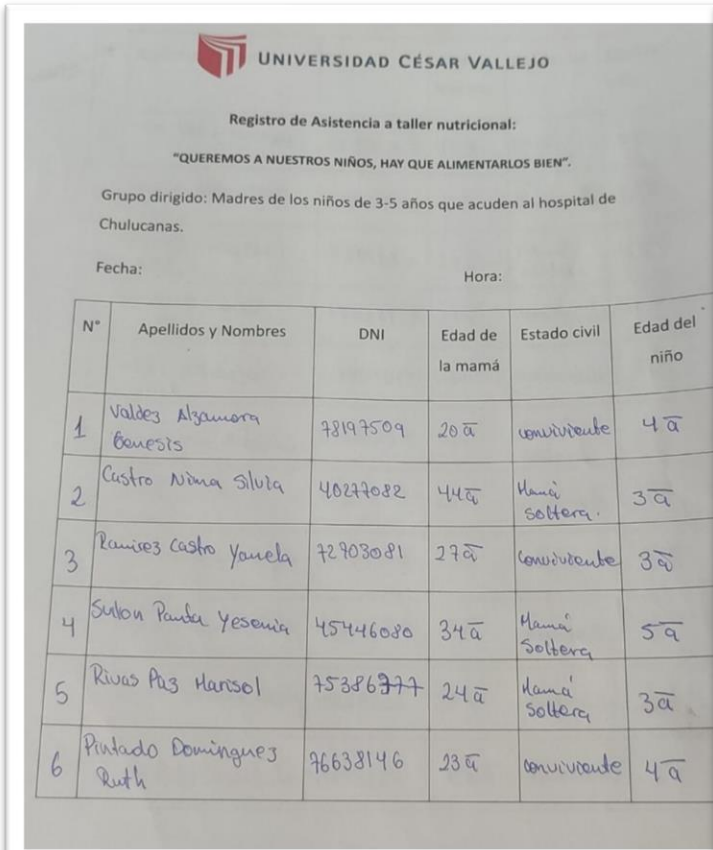 UNIVERSIDAD CÉSAR VALLEJO
Registro de Asistencia a taller nutricional:
"QUEREMOS A NUESTROS NIÑOS, HAY QUE ALIMENTARLOS BIEN".
Grupo dirigido: Madres de los niños de 3-5 años que acuden al hospital de
Chulucanas.
Fecha: Hora:
N° Apellidos y Nombres DNI Edad de la mamá Estado civil Edad del niño
1 Valdez Alzamora Genesis 78197509 20 a conviviente 4 a
2 Castro Nima Silvia 40277082 44 a Mamá soltera. 3 a
3 Ramirez Castro Yanela 72903081 27 a conviviente 3 a
4 Sulon Panta Yesenia 45446080 34 a Mamá Soltera 5 a
5 Rivas Paz Marisol 75386977 24 a Mamá soltera 3 a
6 Pintado Dominguez Ruth 76638146 23 a conviviente 4 a